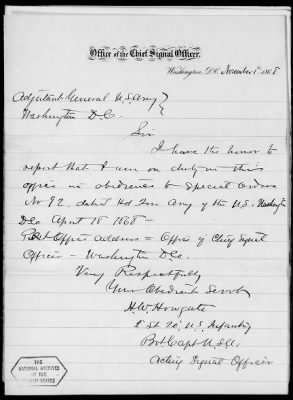 Office of the Chief Signal Officer,
Washington, D.C. November 1st 1868
Adjutant General U.S. Army
Washington D.C.
Sir
I have the honor to
report that I am on duty in this
office in obedience to Special Orders
No 92. dated Hd. Qrs. Army of the U.S. Washington
D.C. April 18 1868 -
Post Office Address = Office of Chief Signal
Officer - Washington D.C.
Very Respectfully
Your Obedient Servt
H.W. Howgate
2d Lt 20" U.S. Infantry
Bvt Capt U.S.A.
Acting Signal Officer
THE
NATIONAL ARCHIVES
OF THE
UNITED STATES